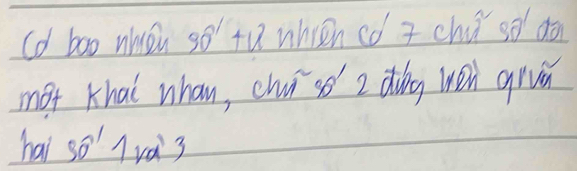 Có bao nhiêu số tự nhiên có 7 chữ số đôi
một khác nhau, chữ số 2 đứng liền giữa
hai số 1 và 3